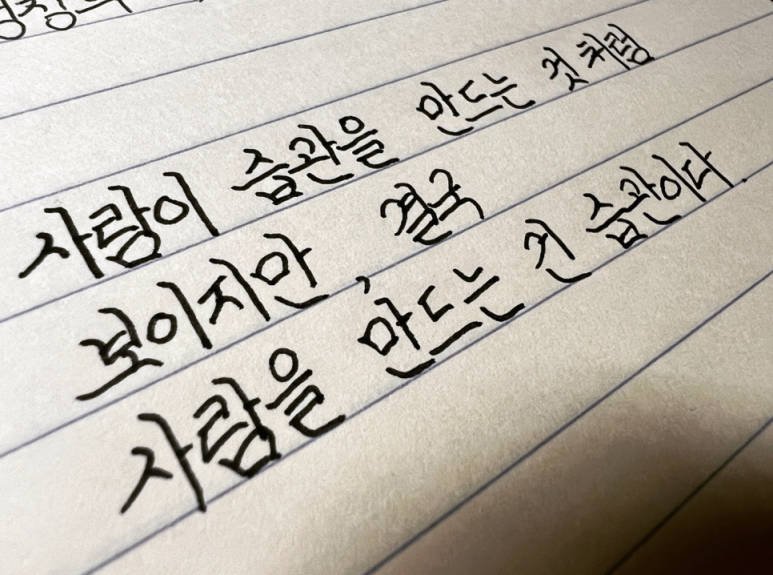 사람이 습관을 만드는 것처럼
보이지만, 결국
사람을 만드는 건 습관이다.